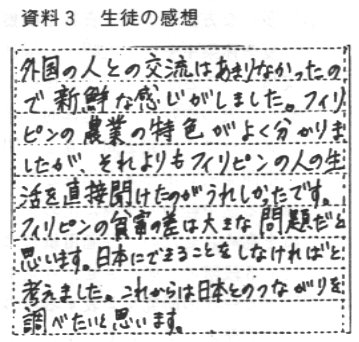 資料3 生徒の感想
外国の人との交流はあまりなかったの
で新鮮な感じがしました。フィリ
ピンの農業の特色がよく分かりま
したが、それよりもフィリピンの人の生
活を直接聞けたのがうれしかったです。
フィリピンの貧富の差は大きな問題だと
思います。日本にできることをしなければと
考えました。これからは日本とのつながりを
調べたいと思います。